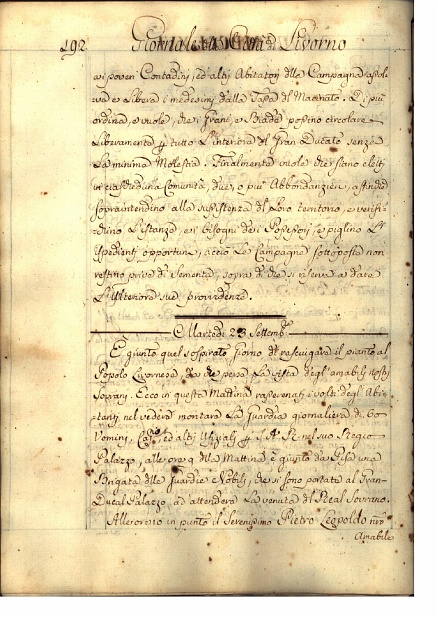 192 Giornale Livorno
ai poveri Contadini, ed altri Abitatori della Campagna assol
ve e libera i medesimi dalla Tassa del Macinato. Di più
ordina, e vuole, che i Grani, e Biade possino circolare
liberamente per tutto l'interiore del Gran Ducato senza
la minima Molestia. Finalmente vuole che siano eletti
in ciascheduna Comunità due, o più Abbondanzieri, affinché
sopraintendino alla sussistenza del Loro territorio, e verifi-
chino L'istanze, e i bisogni dei Possessori e piglino
spedienti opportuni, acciò le Campagne sottoposte non
restino prive di Sementa, sopra di che si riserva a dare
L'Ulteriori sue providenze.
Martedì 23 Settembre
È giunto quel sospirato Giorno di rasciugare il pianto al
Popolo Livornese che perse La vista degl'amabili nostri
Soprani. Ecco in questa Mattina rasserenati i volti degl'Abi-
tanti nel vedere montare La Guardia giornaliera di 60
Uomini, ed altri Ufiziali per S. A. R. nel suo Regio
Palazzo, alle ore 9 della Mattina è giunto da Pisa una
Brigata delle Guardie Nobili, che si sono portate al Gran-
Ducal Palazzo, ad attendere La venuta del Real Sovrano.
Alle ore in punto il Serenissimo Pietro Leopoldo nro
Amabile